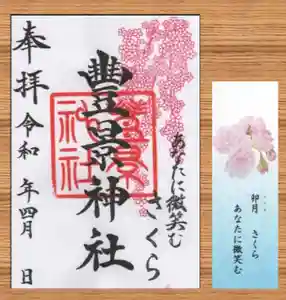 奉拝
豊景神社
豊景神社
あなたに微笑む
さくら
令和 年四月 日
卯月 さくら
あなたに微笑む